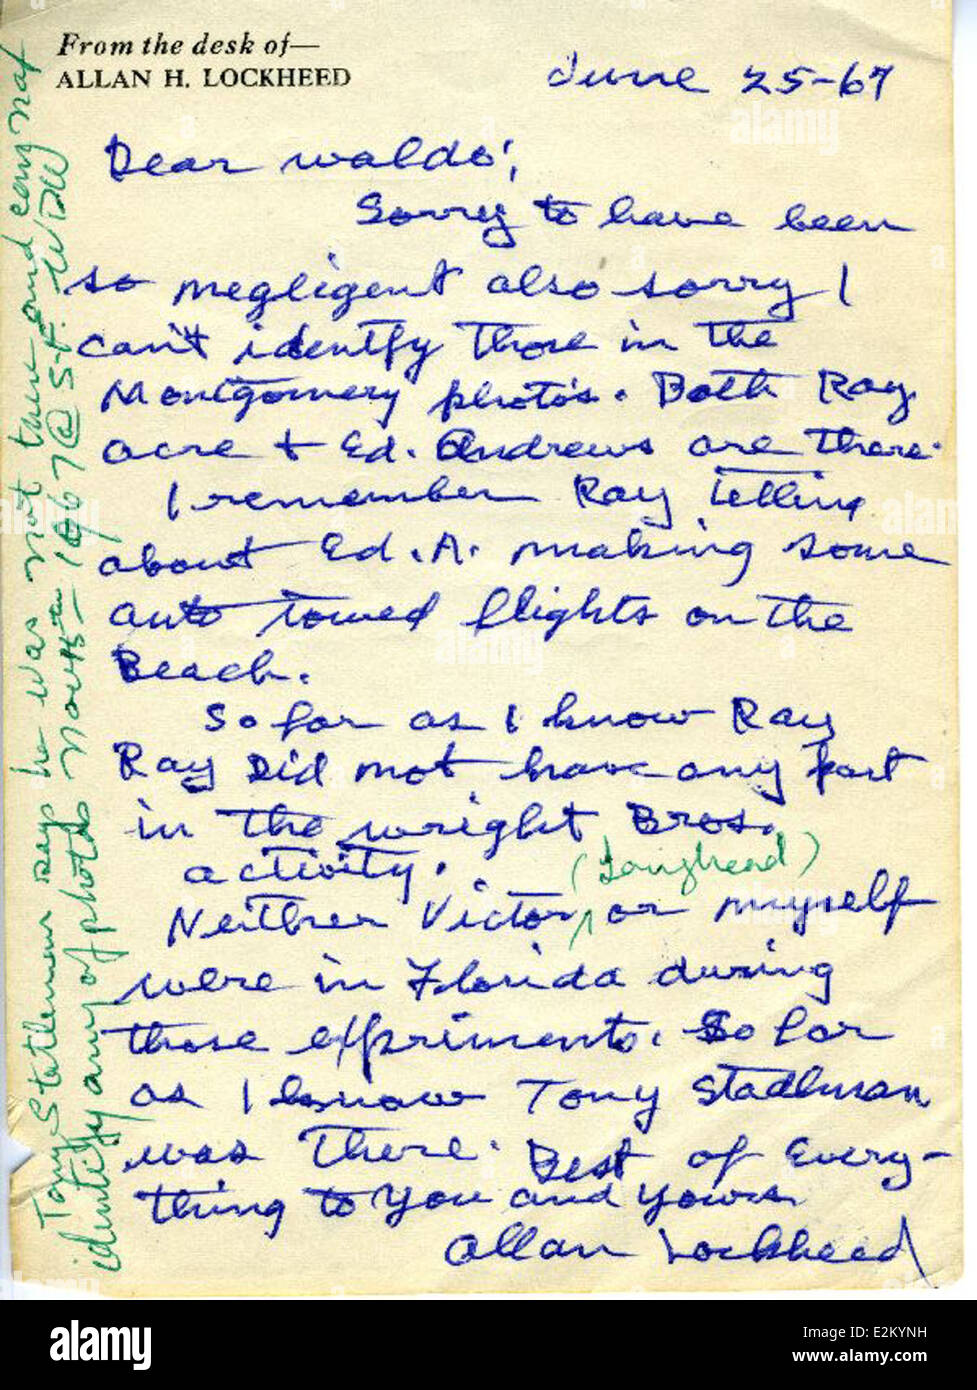 From the desk of—
ALLAN H. LOCKHEED
June 25-67
Dear Waldo;
Sorry to have been
so negligent also sorry I
can't identfy those in the
Montgomery photo's. Both Ray
acre + Ed. Andrews are there.
I remember Ray telling
about Ed. A. making some
auto towed flights on the
Beach.
So far as I know Ray
Ray Did not have any part
in the wright Bros.
activity. (Loughead)
Neither Victor, or myself
were in Florida during
those expriments. So far
as I know Tony Stadlman
was there. Best of Every-
thing to You and yours.
Allan Lockheed
Tony Statlman says he was not there and can not
identify any of photos 1967 @ S.F. WDW
alamy
Image ID: E2KYNH
www.alamy.com